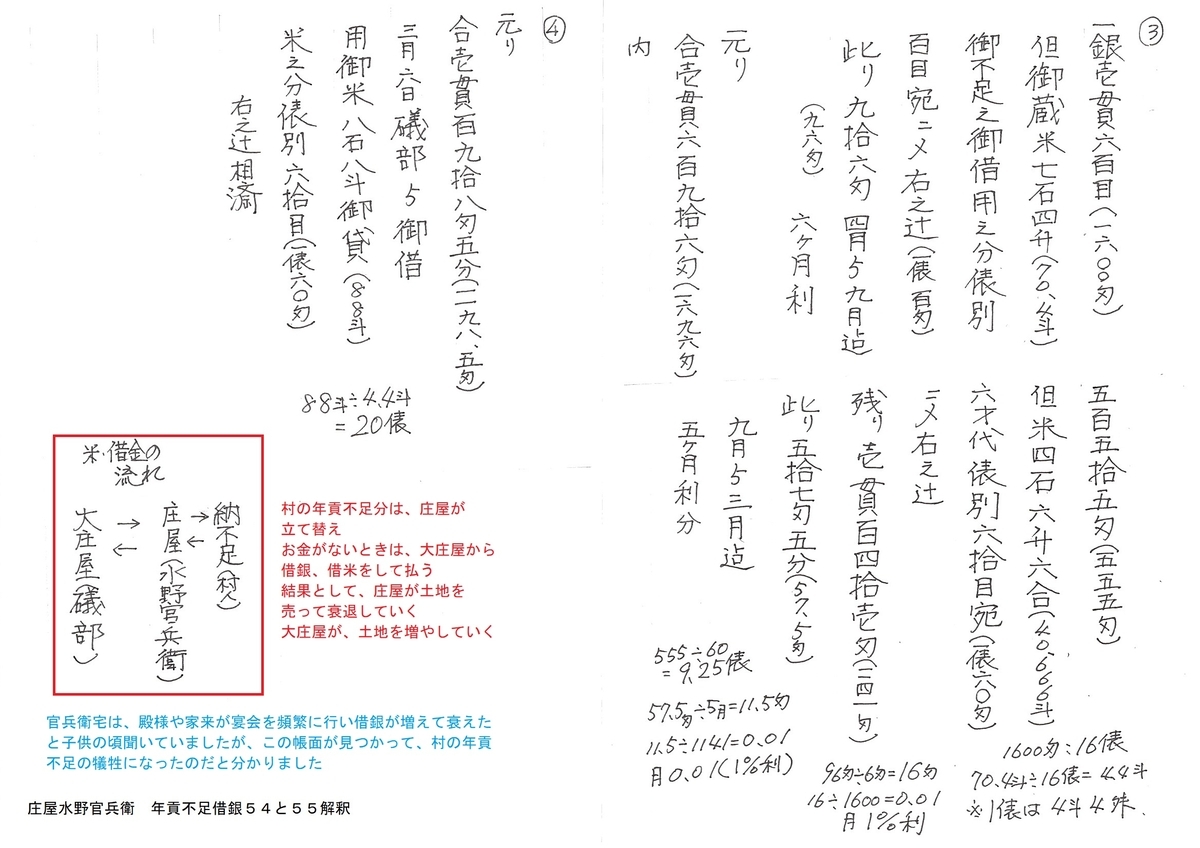 ③
一銀壱貫六百目(一六〇〇匁)
但御蔵米七石四升(70.4斗)
御不足之御借用之分俵別
百目宛ニメ右之辻(一俵百匁)
此り九拾六匁四月ゟ九月迠
(九六匁) 六ケ月利
元り
合壱貫六百九拾六匁(一六九六匁)
内
五百五拾五匁(五五五匁)
但米四石六升六合(40.666斗)
六才代俵別六拾目宛(一俵六〇匁)
ニメ右之辻
残り壱貫百四拾壱匁(一一四一匁)
此り五拾七匁五分(57.5匁)
九月ゟ三月迠
五ケ月利分
555÷60
=9.25俵
57.5匁÷5月=11.5匁
11.5÷1141=0.01
月0.01(1%利)
96匁÷6匁=16匁
16÷1600=0.01
月1%利
1600匁÷16俵
70.4斗÷16俵=4.4斗
※1俵は4斗4升
④
元り
合壱貫百九拾八匁五分(一一九八、五匁)
三月六日礒部ゟ御借
用御米八石八斗御貸(88斗)
米之分俵別六拾目(一俵六〇匁)
右之辻相済
88斗÷4.4斗
=20俵
米・借金の
流れ
納不足(村人)
→ ←
庄屋(水野官兵衛)
→ ←
大庄屋(礒部)
村の年貢不足分は、庄屋が
立て替え
お金がないときは、大庄屋から
借銀、借米をして払う
結果として、庄屋が土地を
売って衰退していく
大庄屋が、土地を増やしていく
官兵衛宅は、殿様や家来が宴会を頻繁に行い借銀が増えて衰えた
と子供の頃聞いていましたが、この帳面が見つかって、村の年貢
不足の犠牲になったのだと分かりました
庄屋水野官兵衛 年貢不足借銀54と55解釈